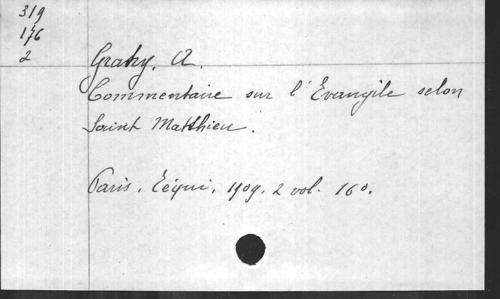 319
176
2
Gratry, A.
Commentaire sur l'Évangile selon
Saint Matthieu.
Paris, Téqui, 1909. 2 vol. 16o.